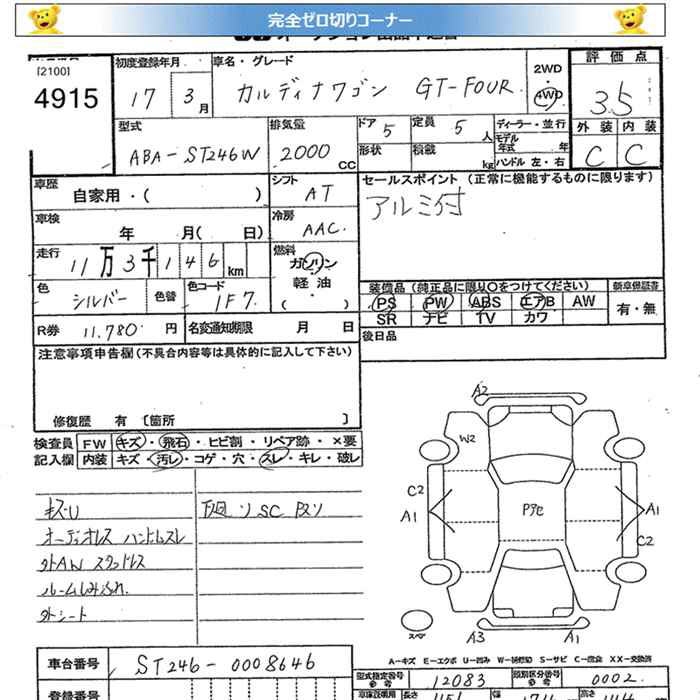 完全ゼロ切りコーナー
[2100]
4915
初度登録年月
17 3月
車名・グレード
カルディナワゴン GT-FOUR
2WD
4WD
評価点
3.5
外装 内装
C C
型式
ABA-ST246W
排気量
2000 CC
ドア 5
定員 5人
形状
積載 kg
ディーラー・並行
モデル年式 年
ハンドル 左・右
車歴
自家用・( )
シフト
AT
セールスポイント (正常に機能するものに限ります)
アルミ付
車検
年 月( 日)
冷房
AAC
走行
11万3千146km
燃料
ガソリン
軽油
( )
色
シルバー
色替
色コード
1F7
装備品 (純正品に限り○をつけてください)
PS PW ABS エアB AW
SR ナビ TV カワ
新車保証書
有・無
R券 11.780 円
名変通知期限 月 日
後日品
注意事項申告欄 (不具合内容等は具体的に記入して下さい)
修復歴 有 〔箇所 〕
検査員記入欄
FW キズ・飛石・ヒビ割・リペア跡・×要
内装 キズ・汚レ・コゲ・穴・スレ・キレ・破レ
キズU
下廻リSC
オーディオレス ハンドルスレ
外AW スタッドレス
ルームしみ汚れ
外シート
A2
W2
C2
A1
Pアセ
A1
C2
スペア
A3
A1
A-キズ E-エクボ U-凹み W-補修跡 S-サビ C-腐食 XX-交換済
車台番号
ST246-0008646
型式指定番号
12083
類別区分番号
0002
登録番号